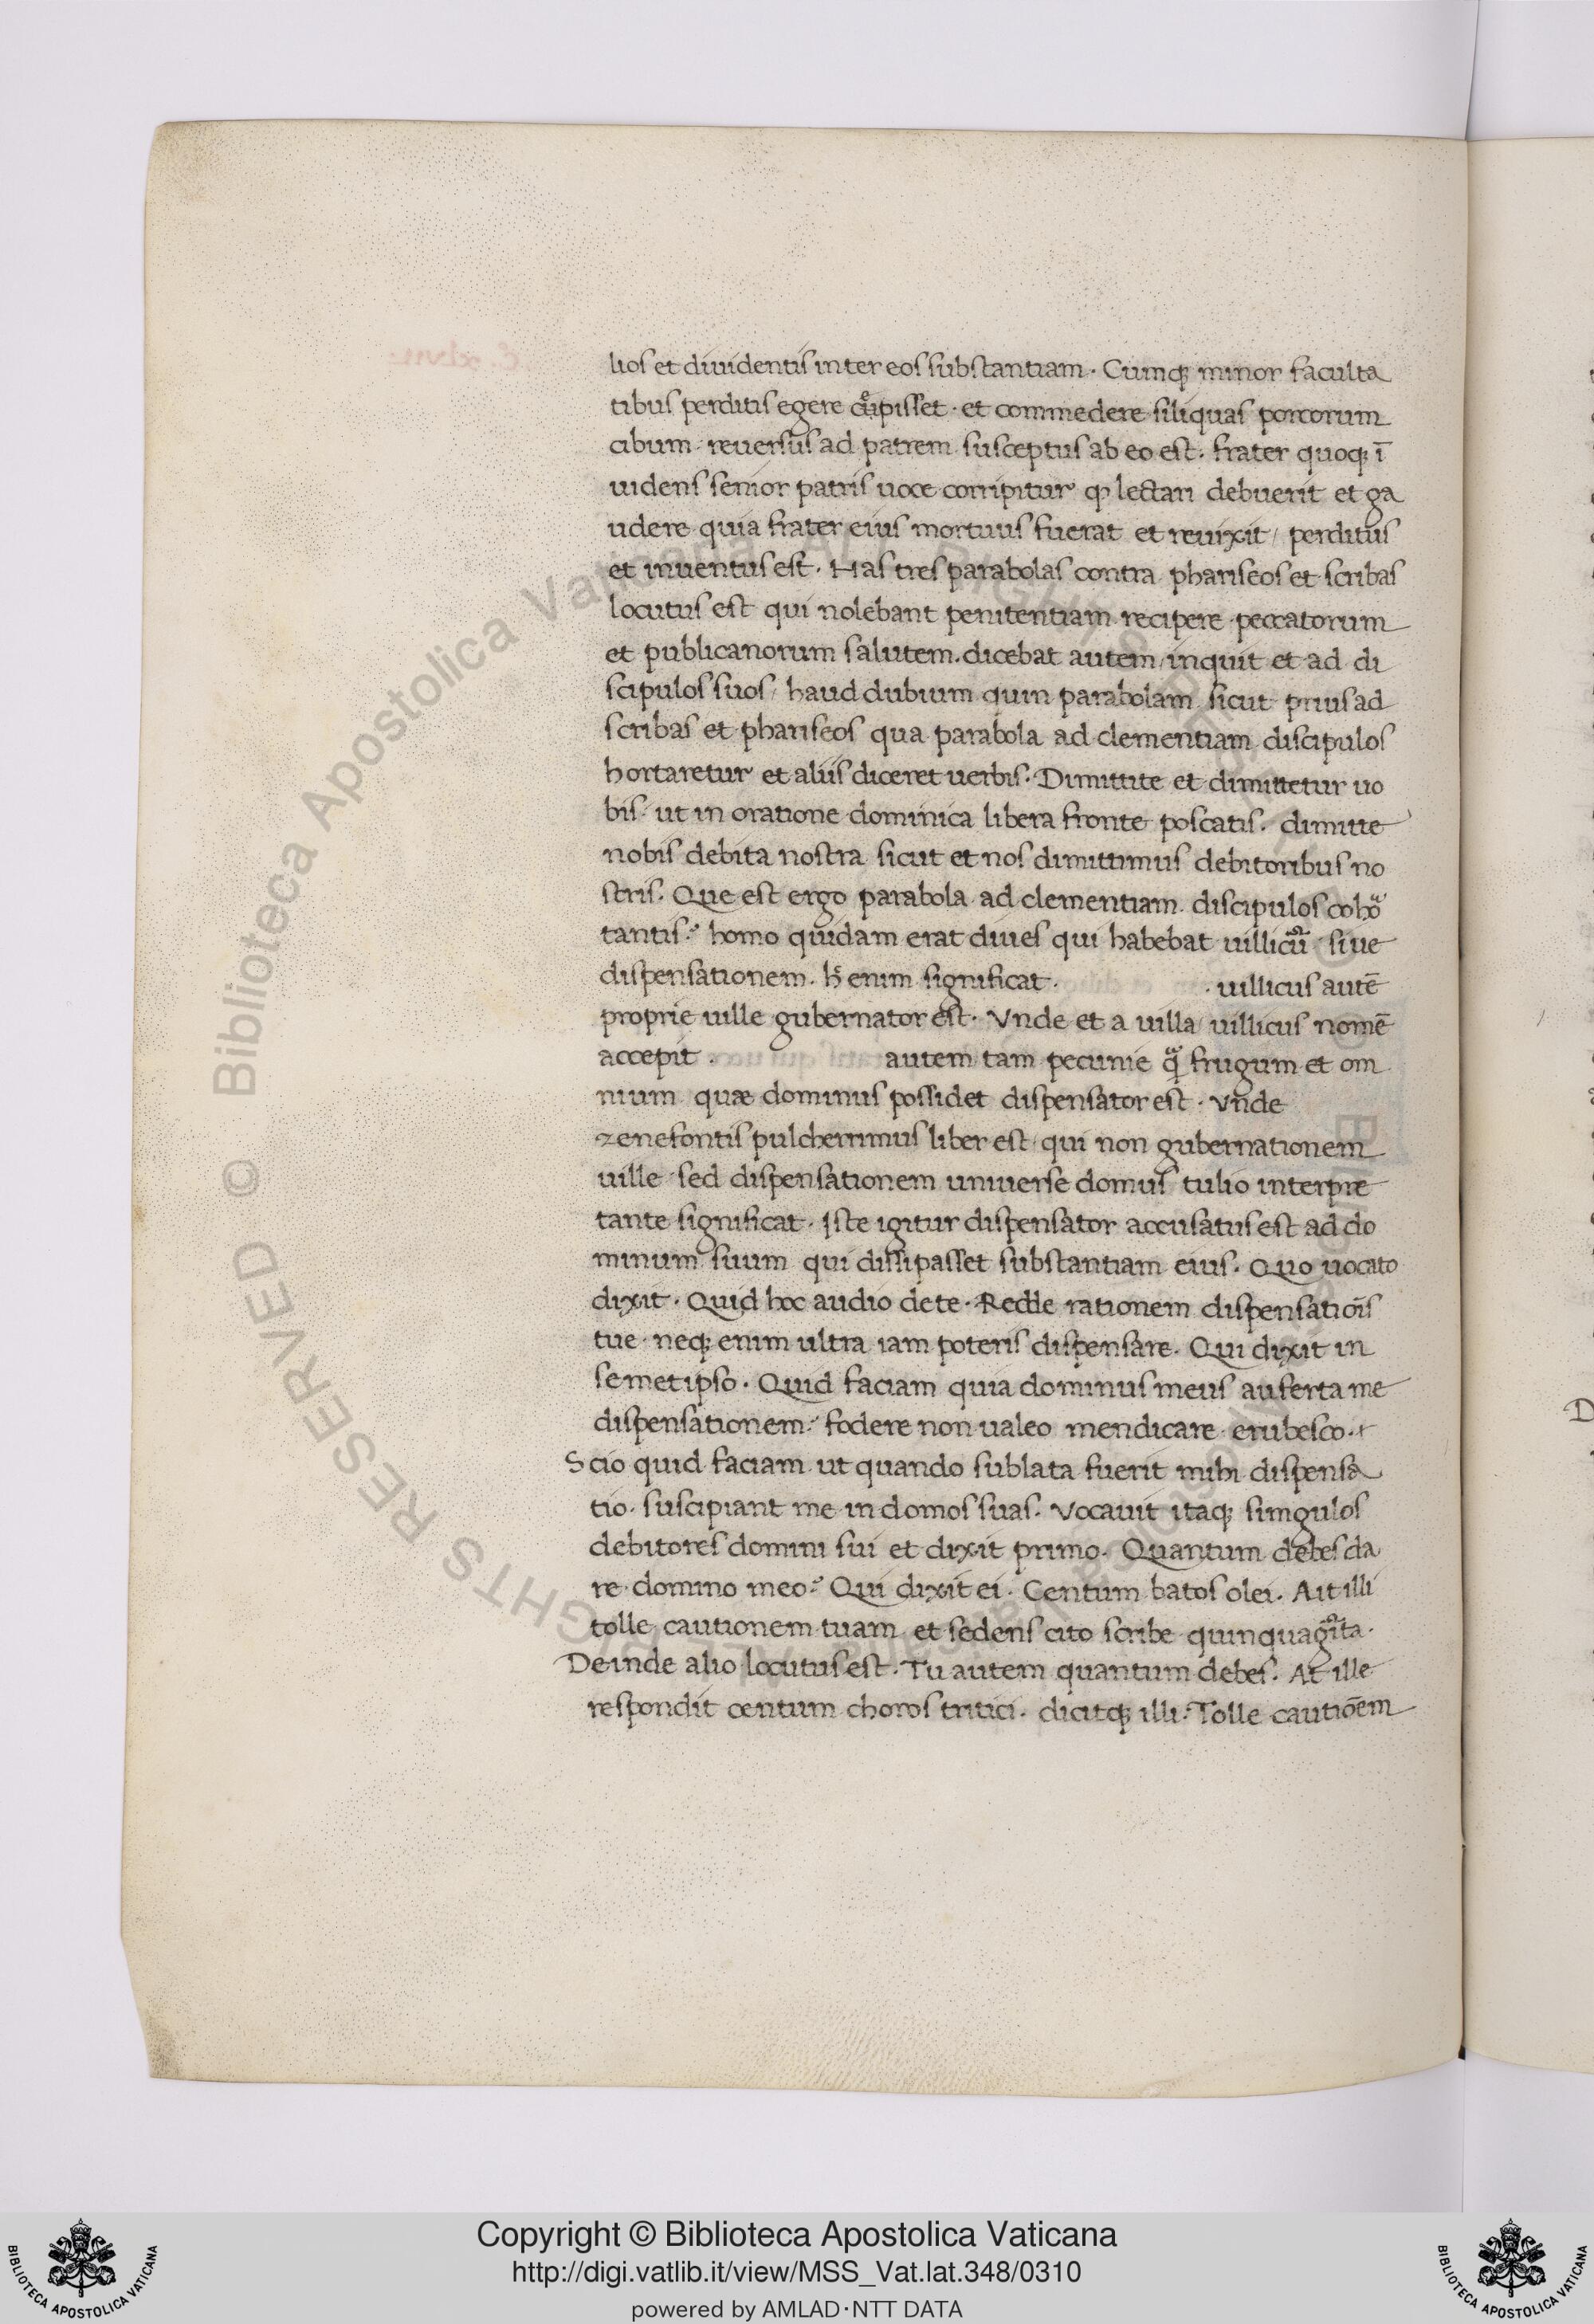 lios et diuidentis inter eos substantiam. Cumq; minor faculta
tibus perditis egere cepisset. et commedere siliquas porcorum
cibum. reuersus ad patrem susceptus ab eo est. frater quoq; ī
uidens senior patris uoce corripitur ꝙ lectari debuerit et ga
udere quia frater eius mortuus fuerat et reuixit / perditus
et inuentus est. Has tres parabolas contra phariseos et scribas
locutus est qui nolebant penitentiam recipere peccatorum
et publicanorum salutem. dicebat autem / inquit et ad di
scipulos suos / haud dubium quin parabolam sicut prius ad
scribas et phariseos qua parabola ad clementiam discipulos
hortaretur et aliis diceret uerbis. Dimittite et dimittetur uo
bis. ut in oratione dominica libera fronte poscatis. dimitte
nobis debita nostra sicut et nos dimittimus debitoribus no
stris. Que est ergo parabola ad clementiam discipulos cohor
tantis? homo quidam erat diues qui habebat uillicū siue
dispensationem. h̄ enim significat. . uillicus autē
proprie uille gubernator est. Vnde et a uilla uillicus nomē
accepit. autem tam pecunie q̃ frugum et om
nium quæ dominus possidet dispensator est. Vnde
zenefontis pulcherrimus liber est qui non gubernationem
uille sed dispensationem uniuerse domus tulio interpre
tante significat. Iste igitur dispensator accusatus est ad do
minum suum qui dissipasset substantiam eius. Quo uocato
dixit. Quid hoc audio de te. Redde rationem dispensatiōis
tue neq; enim ultra iam poteris dispensare. Qui dixit in
semetipso. Quid faciam quia dominus meus aufert a me
dispensationem? fodere non ualeo mendicare erubesco.
Scio quid faciam ut quando sublata fuerit mihi dispensa
tio. suscipiant me in domos suas. Vocauit itaq; simgulos
debitores domini sui et dixit primo. Quantum debes da
re domino meo? Qui dixit ei. Centum batos olei. Ait illi
tolle cautionem tuam et sedens cito scribe quinquagīta.
Deinde alio locutus est. Tu autem quantum debes. At ille
respondit centum choros tritici. dicitq; illi. Tolle cautiōem
Copyright © Biblioteca Apostolica Vaticana
http://digi.vatlib.it/view/MSS_Vat.lat.348/0310
powered by AMLAD·NTT DATA